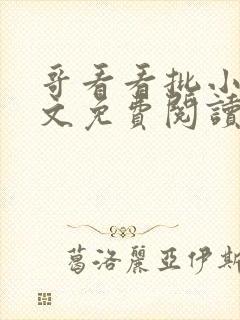 哥看看批小
文免費閱讀
葛洛麗亞伊斯